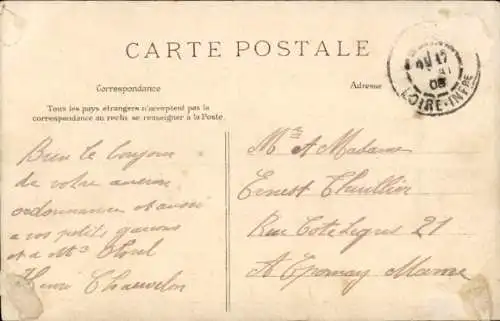 CARTE POSTALE
Correspondance
Adresse
Tous les pays étrangers n'acceptent pas la
correspondance au recto se renseigner à la Poste.
17
08
LOIRE-INFRE
Bien le bonjour
de votre ancien
ordonnance et aussi
a vos petits garcons
et a Mlle
Henri Chauvelon
Mr et Madame
Ernest Thuillier
Rue 21
A Epernay Marne